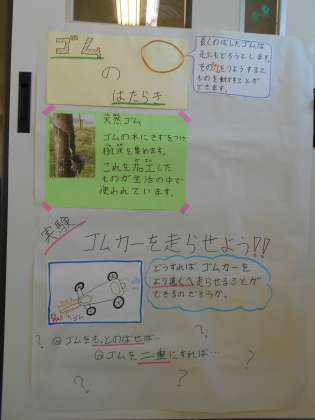 ゴム
の
はたらき
長くのばしたゴムは
元にもどろうとします。
その力をりようすると
ものを動かすことが
できます。
天然ゴム
ゴムの木にきずをつけ、
樹液を集めます。
これを加工した
ものが生活の中で
使われています。
実験
ゴムカーを走らせよう!!
どうすれば、ゴムカーを
より遠くへ走らせることが
できるのだろうか。
ゴム
? ゴムをもっとのばせば… ?
ゴムを二重にすれば…
? ? ?